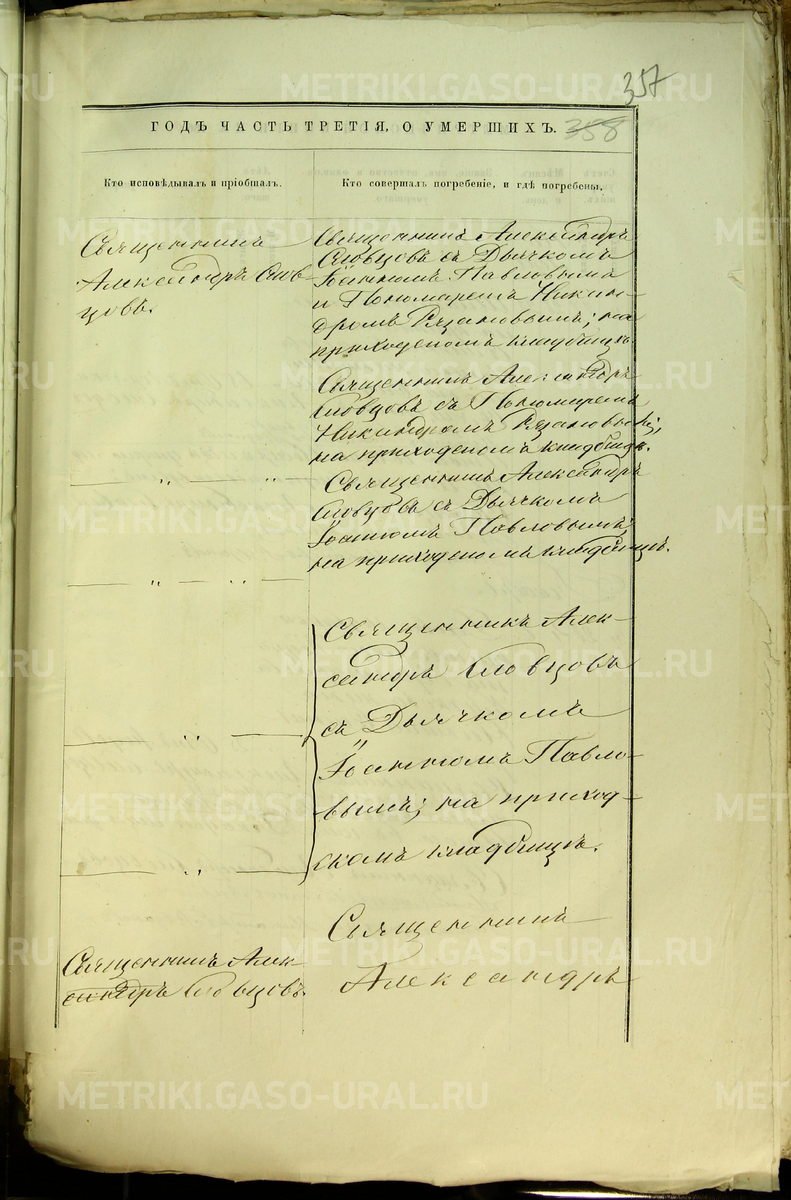 357
ГОДЪ ЧАСТЬ ТРЕТІЯ, О УМЕРШИХЪ. 358
Кто исповѣдывалъ и пріобщалъ.
Кто совершалъ погребеніе, и гдѣ погребены.
Священникъ
Александръ Слов-
цовъ.
Священникъ Александръ
Словцовъ съ Дьячкомъ
Іоанномъ Павловымъ
и Пономаремъ Никан-
дромъ Рязановымъ; на
приходскомъ кладбищѣ.
Священникъ Александръ
Словцовъ съ Пономаремъ
Никандромъ Рязановымъ;
на приходскомъ кладбищѣ.
— „ — „ —
Священникъ Александръ
Словцовъ съ Дьячкомъ
Іоанномъ Павловымъ;
на приходскомъ кладбищѣ.
— „ — „ —
Священникъ Алек-
сандръ Словцовъ
съ Дьячкомъ
— „ —
Іоанномъ Павло-
вымъ; на приход-
скомъ кладбищѣ.
— „ —
Священникъ
Александръ
Священникъ Алек-
сандръ Словцовъ.
METRIKI.GASO-URAL.RU